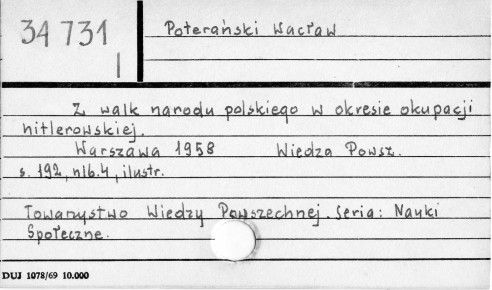 34 731
I
Poterański Wacław
Z walk narodu polskiego w okresie okupacji
hitlerowskiej.
Warszawa 1958 Wiedza Powsz.
s. 192, nlb. 4, ilustr.
Towarzystwo Wiedzy Powszechnej. Seria: Nauki
Społeczne.
DUJ 1078/69 10.000